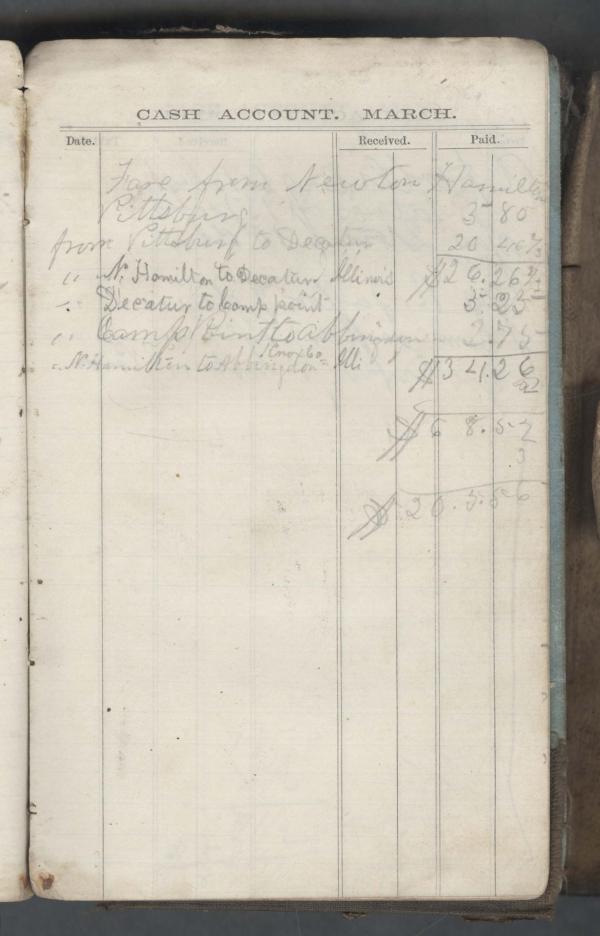 CASH ACCOUNT. MARCH.
Date. Received. Paid.
Fare from Newton Hamilton
Pittsburg 5 80
from Pittsburg to Decatur 20 46½
" N. Hamilton to Decatur Illinois $26.26½
" Decatur to Camp point 5.25
" Camp Point to Abbingdon 2.75
Knox Co
" N. Hamilton to Abbingdon Illi $34.26
2
$68.52
3
$205.56